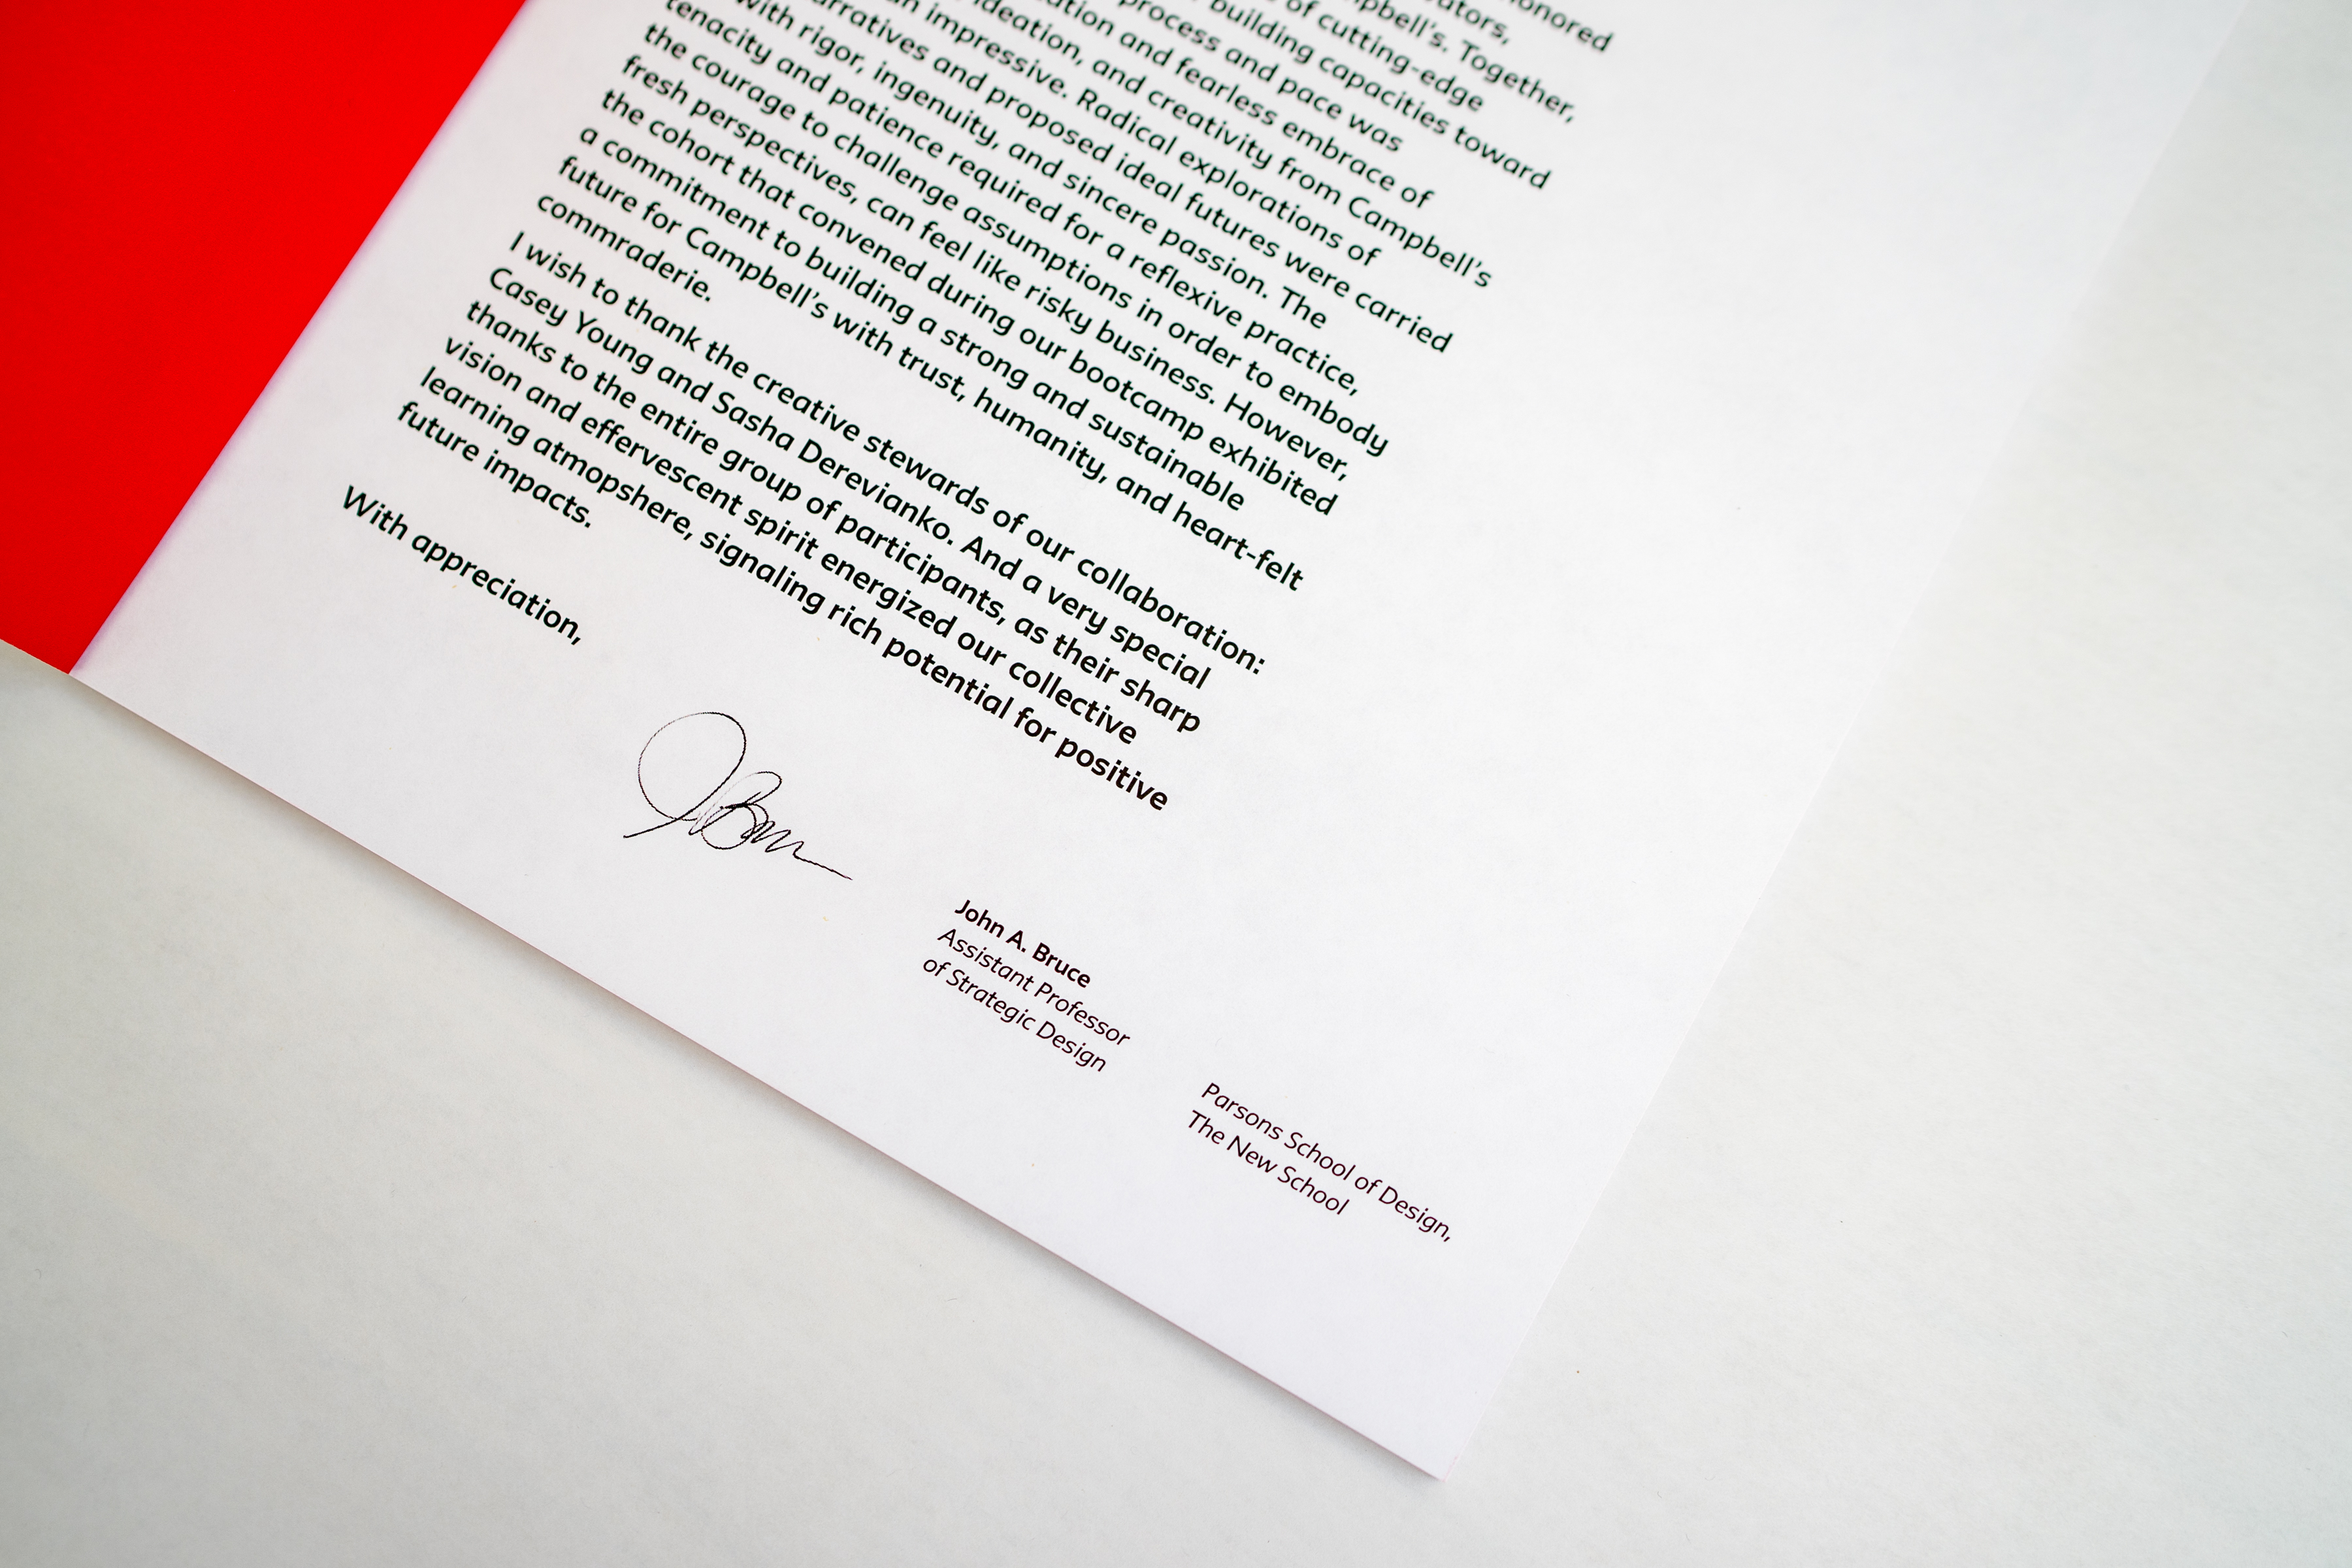 honored
of cutting-edge
building capacities toward
process and pace was
and fearless embrace of
ideation, and creativity from Campbell's
impressive. Radical explorations of
and proposed ideal futures were carried
with rigor, ingenuity, and sincere passion. The
tenacity and patience required for a reflexive practice,
the courage to challenge assumptions in order to embody
fresh perspectives, can feel like risky business. However,
the cohort that convened during our bootcamp exhibited
a commitment to building a strong and sustainable
future for Campbell's with trust, humanity, and heart-felt
commraderie.
I wish to thank the creative stewards of our collaboration:
Casey Young and Sasha Derevianko. And a very special
thanks to the entire group of participants, as their sharp
vision and effervescent spirit energized our collective
learning atmopshere, signaling rich potential for positive
future impacts.
With appreciation,
John A. Bruce
Assistant Professor
of Strategic Design
Parsons School of Design,
The New School